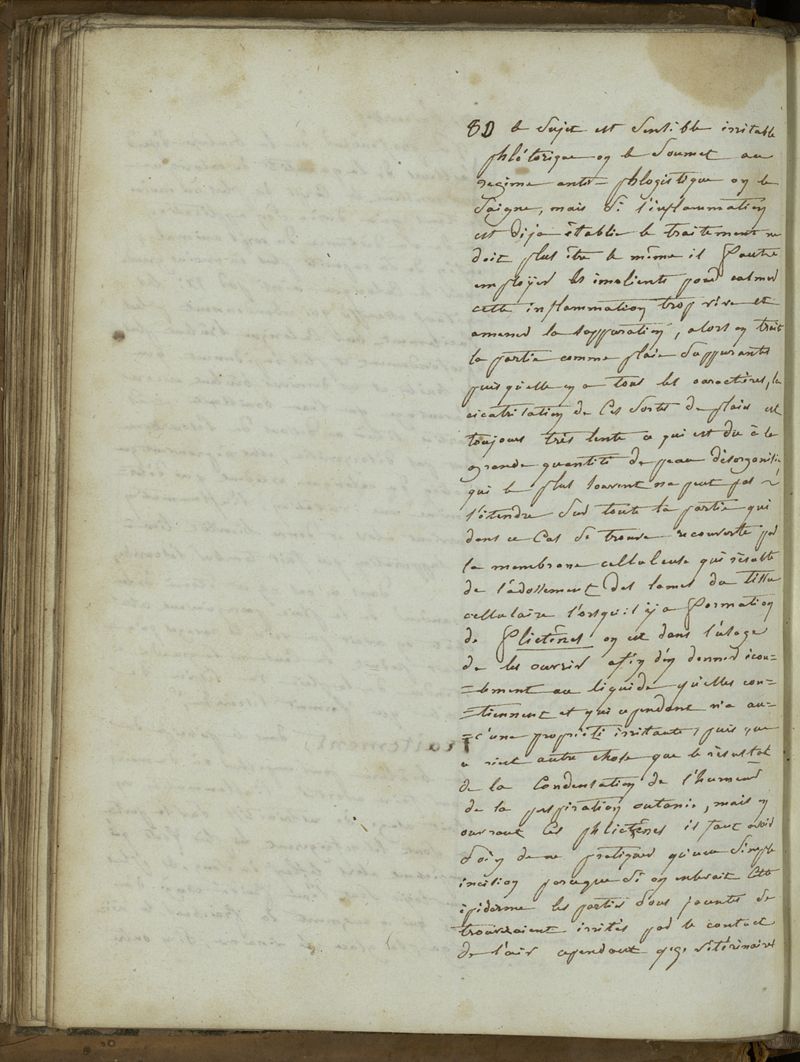 SD le sujet est sensible irritable
phlétorique on le soumet au
regime anti-phlogistique on le
saigne, mais si l'inflammation
est dija établie le traitement ne
doit plus être le même il faut
employer les imolients pour calmer
cette inflammation trop vive et
amener la supporation, alors on trait
la partie comme plaie supporante
puis quelle en a tous les caractères, la
cicatrisation de ces sortes de plaies est
toujours très lente ce qui est du à la
grande quantité de peau désorganisée
qui le plus souvent ne peut pas
s'étendre sur toute la partie qui
dans ce cas se trouve recouverte par
la membrane celluleuse qui résulte
de l'adossement des lames du tissu
cellulaire l'orsqu'il y a formation
de Plictènes on est dans l'usage
de les ouvrir afin d'en donner écou=
=lement au liquide qu'elles con=
=tiennent et qui cependant n'a au=
=c'une propriété irritante, puis que
ce n'est autre chose que le résultat
de la Condensation de l'humeur
de la perspiration cutanée, mais en
ouvrant les phlictènes il faut avoir
soin de ne pratiquer qu'une simple
incision parceque si on enlevait cette
épiderme les parties sous jacentes se
trouveraient irrités par le contact
de l'air cependant qqs vétérinaires
Traitement